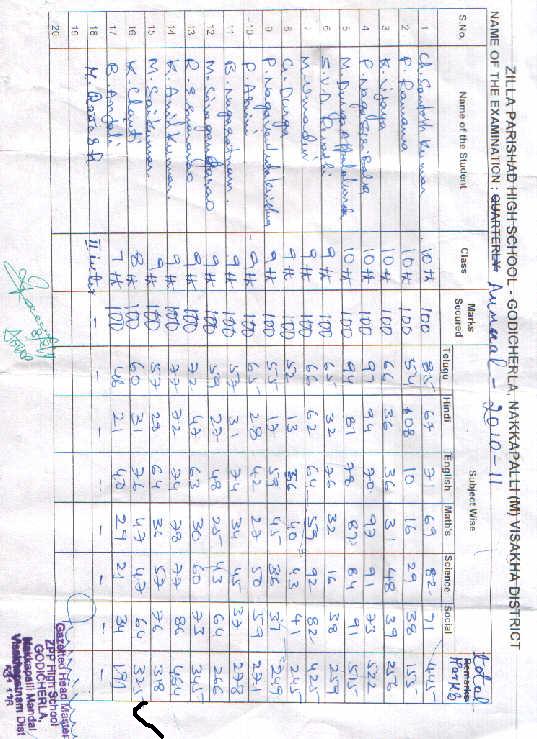 ZILLA PARISHAD HIGH SCHOOL - GODICHERLA, NAKKAPALLI (M) VISAKHA DISTRICT
NAME OF THE EXAMINATION : QUARTERLY Annual - 2010-11
S.No. Name of the Student Class Marks Secured Subject Wise Total Marks Remarks
Telugu Hindi English Maths Science Social
1 Ch. Santosh Kumar 10th 100 85 67 71 69 82 71 445
2 P. Ramana 10th 100 54 08 10 16 29 38 155
3 K. Vijaya 10th 100 66 36 36 31 48 39 256
4 P. Naga Sesi Rekha 10th 100 97 94 70 97 91 73 522
5 M. Durga 10th 100 94 81 78 87 84 91 515
6 S.V.D. 9th 100 65 32 76 32 16 38 259
7 M. Umadevi 9th 100 66 62 64 59 92 82 425
8 Ch. Durga 9th 100 52 13 56 40 43 41 245
9 P. Naga 9th 100 55 17 59 45 36 37 249
10 P. 9th 100 65 28 42 27 50 59 271
11 B. Nagaratnam 9th 100 57 31 74 34 45 37 278
12 M. Siva 9th 100 59 27 48 25 43 64 266
13 R. 9th 100 72 47 63 30 60 73 345
14 K. Anil Kumar 9th 100 77 72 74 78 77 86 464
15 M. Sai Kumar 9th 100 57 29 64 36 57 76 318
16 K. Chanti 8th 100 60 31 76 47 47 64 325
17 B. Anjali 7th 100 48 21 40 29 21 34 191
18 M. II inter - - - - - - - -
19
20
Gazetted Head Master
ZPP High School
GODICHERLA,
Nakkapalli Mandal
Visakhapatnam Dist